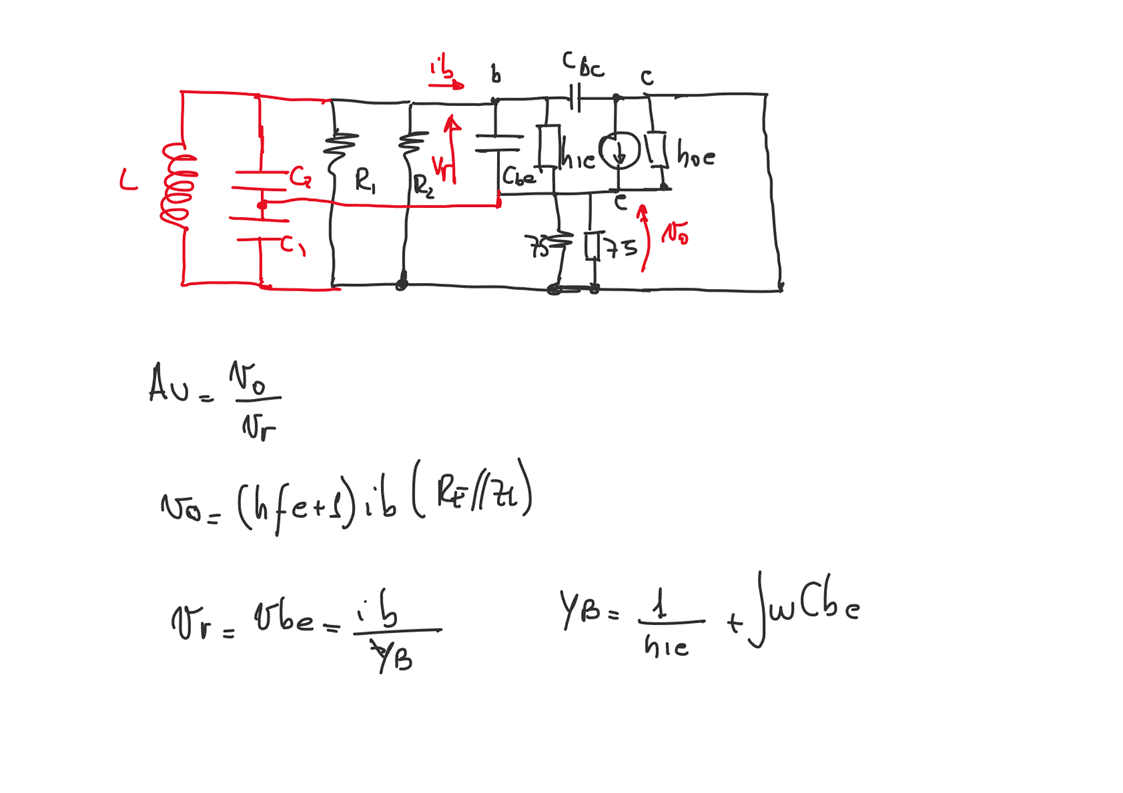 ib b Cbc c
L C2 R1 R2 vr Cbe hie hoe
e
C1 75 75 vo
Av = vo / vr
vo = (hfe+1) ib (RE // ZL)
vr = vbe = ib / YB YB = 1 / hie + jwCbe